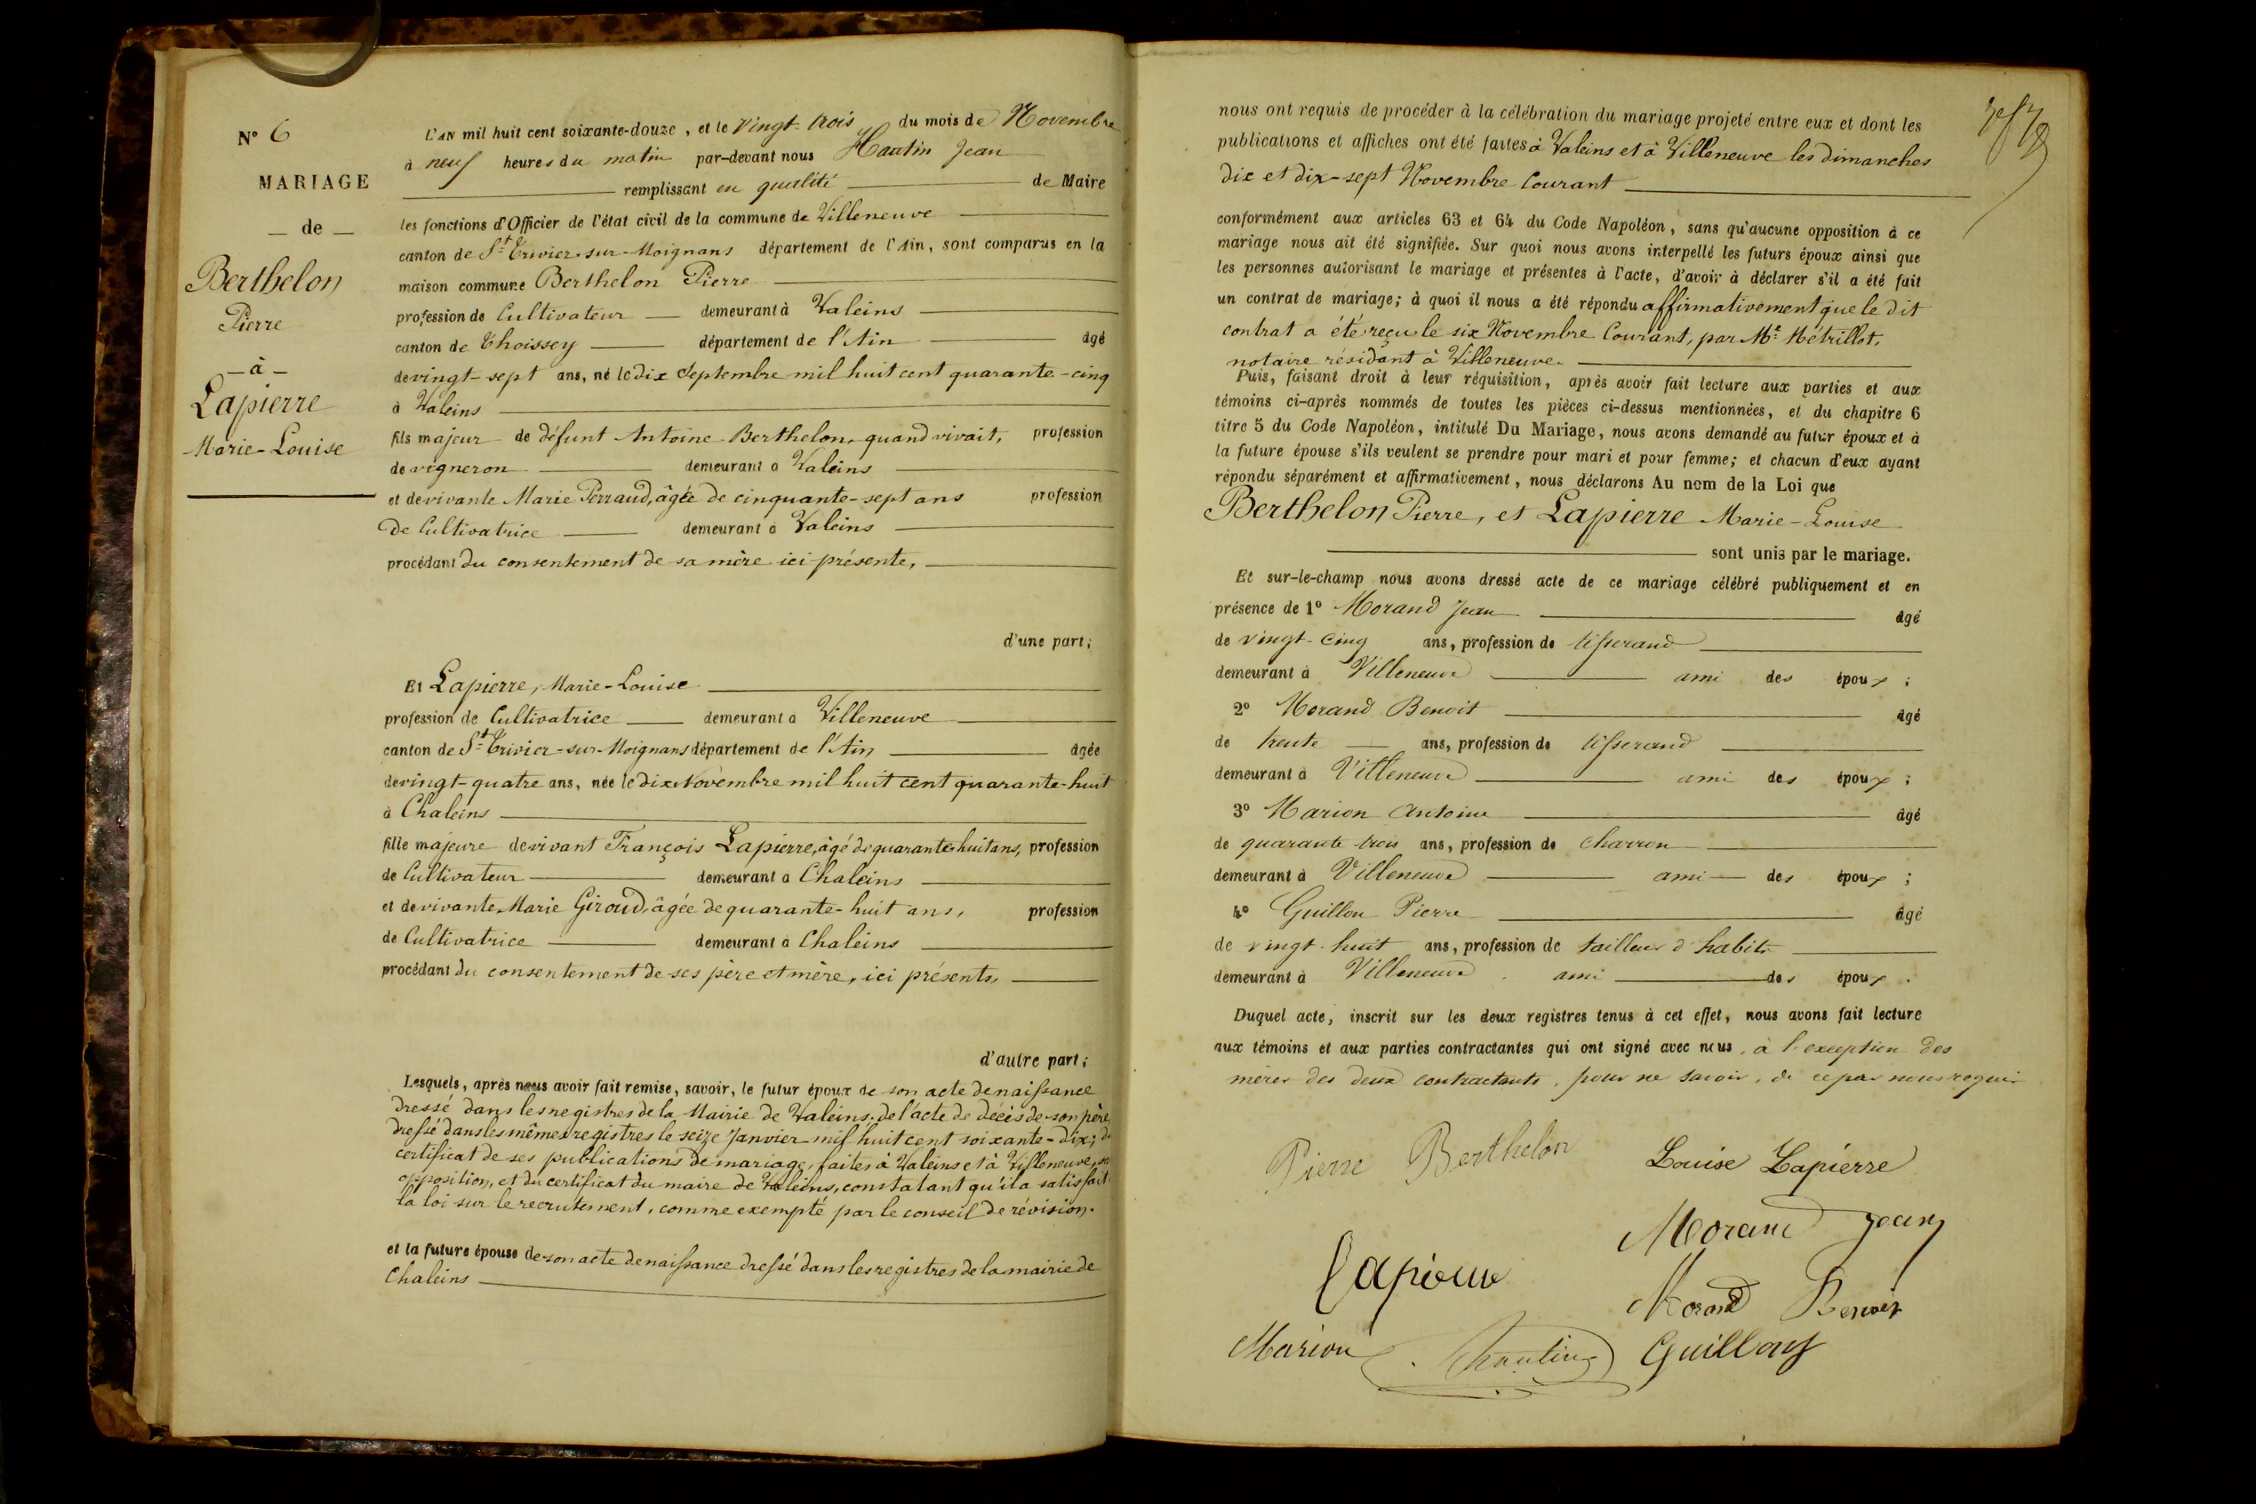 N° 6
MARIAGE
— de —
Berthelon
Pierre
— à —
Lapierre
Marie-Louise
L'AN mil huit cent soixante-douze, et le vingt-trois du mois de Novembre
à neuf heures du matin par-devant nous Hautin Jean
remplissant en qualité de Maire
les fonctions d'Officier de l'état civil de la commune de Villeneuve
canton de St Trivier-sur-Moignans département de l'Ain, sont comparus en la
maison commune Berthelon Pierre
profession de Cultivateur demeurant à Valeins
canton de Thoissey département de l'Ain âgé
de vingt-sept ans, né le dix Septembre mil huit cent quarante-cinq
à Valeins
fils majeur de défunt Antoine Berthelon, quand vivait, profession
de vigneron demeurant à Valeins
et de vivante Marie Perraud, âgée de cinquante-sept ans profession
de Cultivatrice demeurant à Valeins
procédant du consentement de sa mère ici présente,
d'une part;
Et Lapierre, Marie-Louise
profession de Cultivatrice demeurant à Villeneuve
canton de St Trivier-sur-Moignans département de l'Ain âgée
de vingt-quatre ans, née le dix Novembre mil huit cent quarante-huit
à Chaleins
fille majeure de vivant François Lapierre, âgé de quarante-huit ans, profession
de Cultivateur demeurant à Chaleins
et de vivante Marie Giroud, âgée de quarante-huit ans, profession
de Cultivatrice demeurant à Chaleins
procédant du consentement de ses père et mère, ici présents,
d'autre part;
Lesquels, après nous avoir fait remise, savoir, le futur époux de son acte de naissance
dressé dans les registres de la Mairie de Valeins, de l'acte de décès de son père,
dressé dans les mêmes registres le seize Janvier mil huit cent soixante-dix; du
certificat de ses publications de mariage, faites à Valeins et à Villeneuve,
opposition, et du certificat du maire de Valeins, constatant qu'il a satisfait
la loi sur le recrutement, comme exempté par le conseil de révision.
et la future épouse de son acte de naissance dressé dans les registres de la mairie de
Chaleins
nous ont requis de procéder à la célébration du mariage projeté entre eux et dont les
publications et affiches ont été faites à Valeins et à Villeneuve les dimanches
dix et dix-sept Novembre Courant
conformément aux articles 63 et 64 du Code Napoléon, sans qu'aucune opposition à ce
mariage nous ait été signifiée. Sur quoi nous avons interpellé les futurs époux ainsi que
les personnes autorisant le mariage et présentes à l'acte, d'avoir à déclarer s'il a été fait
un contrat de mariage; à quoi il nous a été répondu affirmativement que le dit
contrat a été reçu le six Novembre Courant, par Me Métrillot,
notaire résidant à Villeneuve.
Puis, faisant droit à leur réquisition, après avoir fait lecture aux parties et aux
témoins ci-après nommés de toutes les pièces ci-dessus mentionnées, et du chapitre 6
titre 5 du Code Napoléon, intitulé Du Mariage, nous avons demandé au futur époux et à
la future épouse s'ils veulent se prendre pour mari et pour femme; et chacun d'eux ayant
répondu séparément et affirmativement, nous déclarons Au nom de la Loi que
Berthelon Pierre, et Lapierre Marie-Louise
sont unis par le mariage.
Et sur-le-champ nous avons dressé acte de ce mariage célébré publiquement et en
présence de 1° Morand Jean âgé
de vingt-cinq ans, profession de tisserand
demeurant à Villeneuve ami des époux;
2° Morand Benoit âgé
de trente ans, profession de tisserand
demeurant à Villeneuve ami des époux;
3° Marion Antoine âgé
de quarante trois ans, profession de charron
demeurant à Villeneuve ami des époux;
4° Guillon Pierre âgé
de vingt-huit ans, profession de tailleur d'habits
demeurant à Villeneuve ami des époux.
Duquel acte, inscrit sur les deux registres tenus à cet effet, nous avons fait lecture
aux témoins et aux parties contractantes qui ont signé avec nous, à l'exception des
mères des deux contractants, pour ne savoir, de ce par nous requis
Pierre Berthelon
Louise Lapierre
Morand Jean
Lapierre
Morand Benoit
Marion
Hautin
Guillon